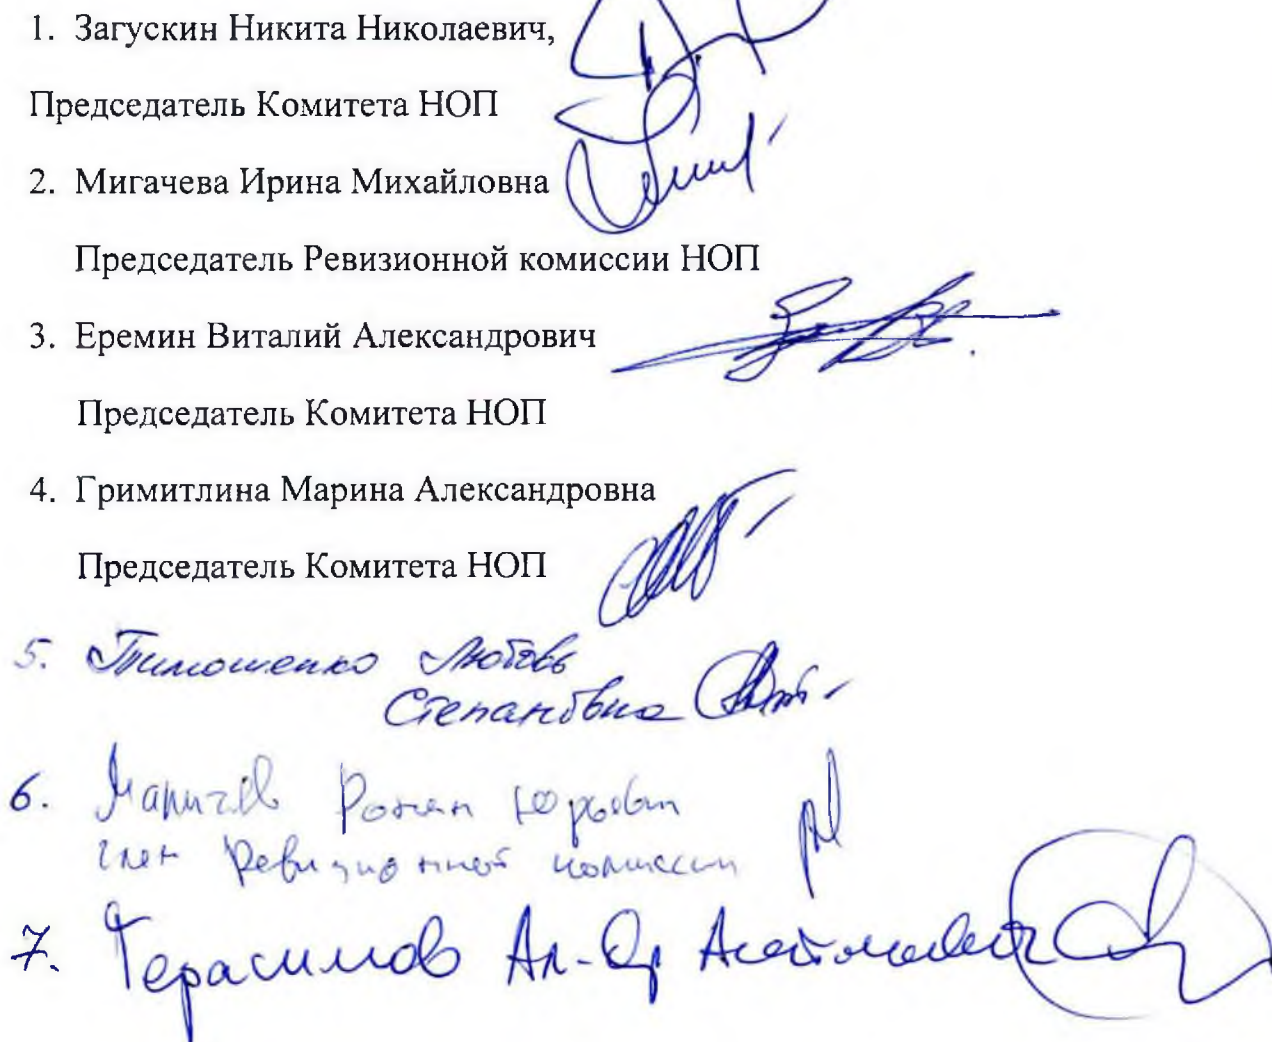 1. Загускин Никита Николаевич,
Председатель Комитета НОП
2. Мигачева Ирина Михайловна
Председатель Ревизионной комиссии НОП
3. Еремин Виталий Александрович
Председатель Комитета НОП
4. Гримитлина Марина Александровна
Председатель Комитета НОП
5. Тимошенко Любовь
Степановна
6. Роман Юрьевич
член Ревизионной комиссии
7. Герасимов Ал-др